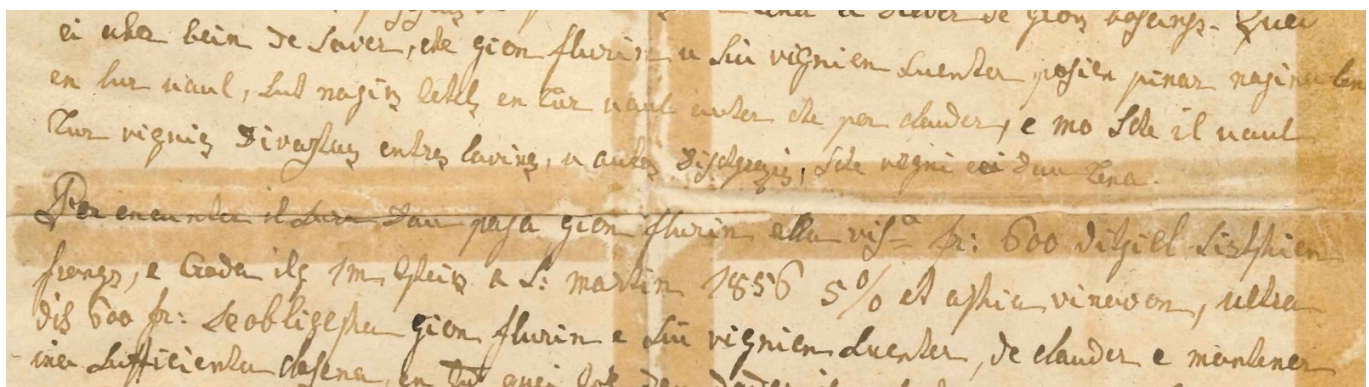 lena a dever de gion
ei aber bein de saver, che gion flurin u siu vignien suenter posien pinar nagina lena
en lur uaul, sut nagin tetel en lur uaul auter che per clauder, e mo sche il uaul
lur vignis divastaus entras lavinas, u autras dischgrazis, sche vegni ei dau lena.
Per encunter il dau paga gion flurin alla vis.a fr: 600 ditgiel sistschien
francs, e croda ils 1m tscheins a S: martin 1856 5% et aschia vinavon, ultra
dils 600 fr: se obligescha gion flurin e siu vignien suenter, de clauder e mantener
ina sufficienta clasena, en tut quei